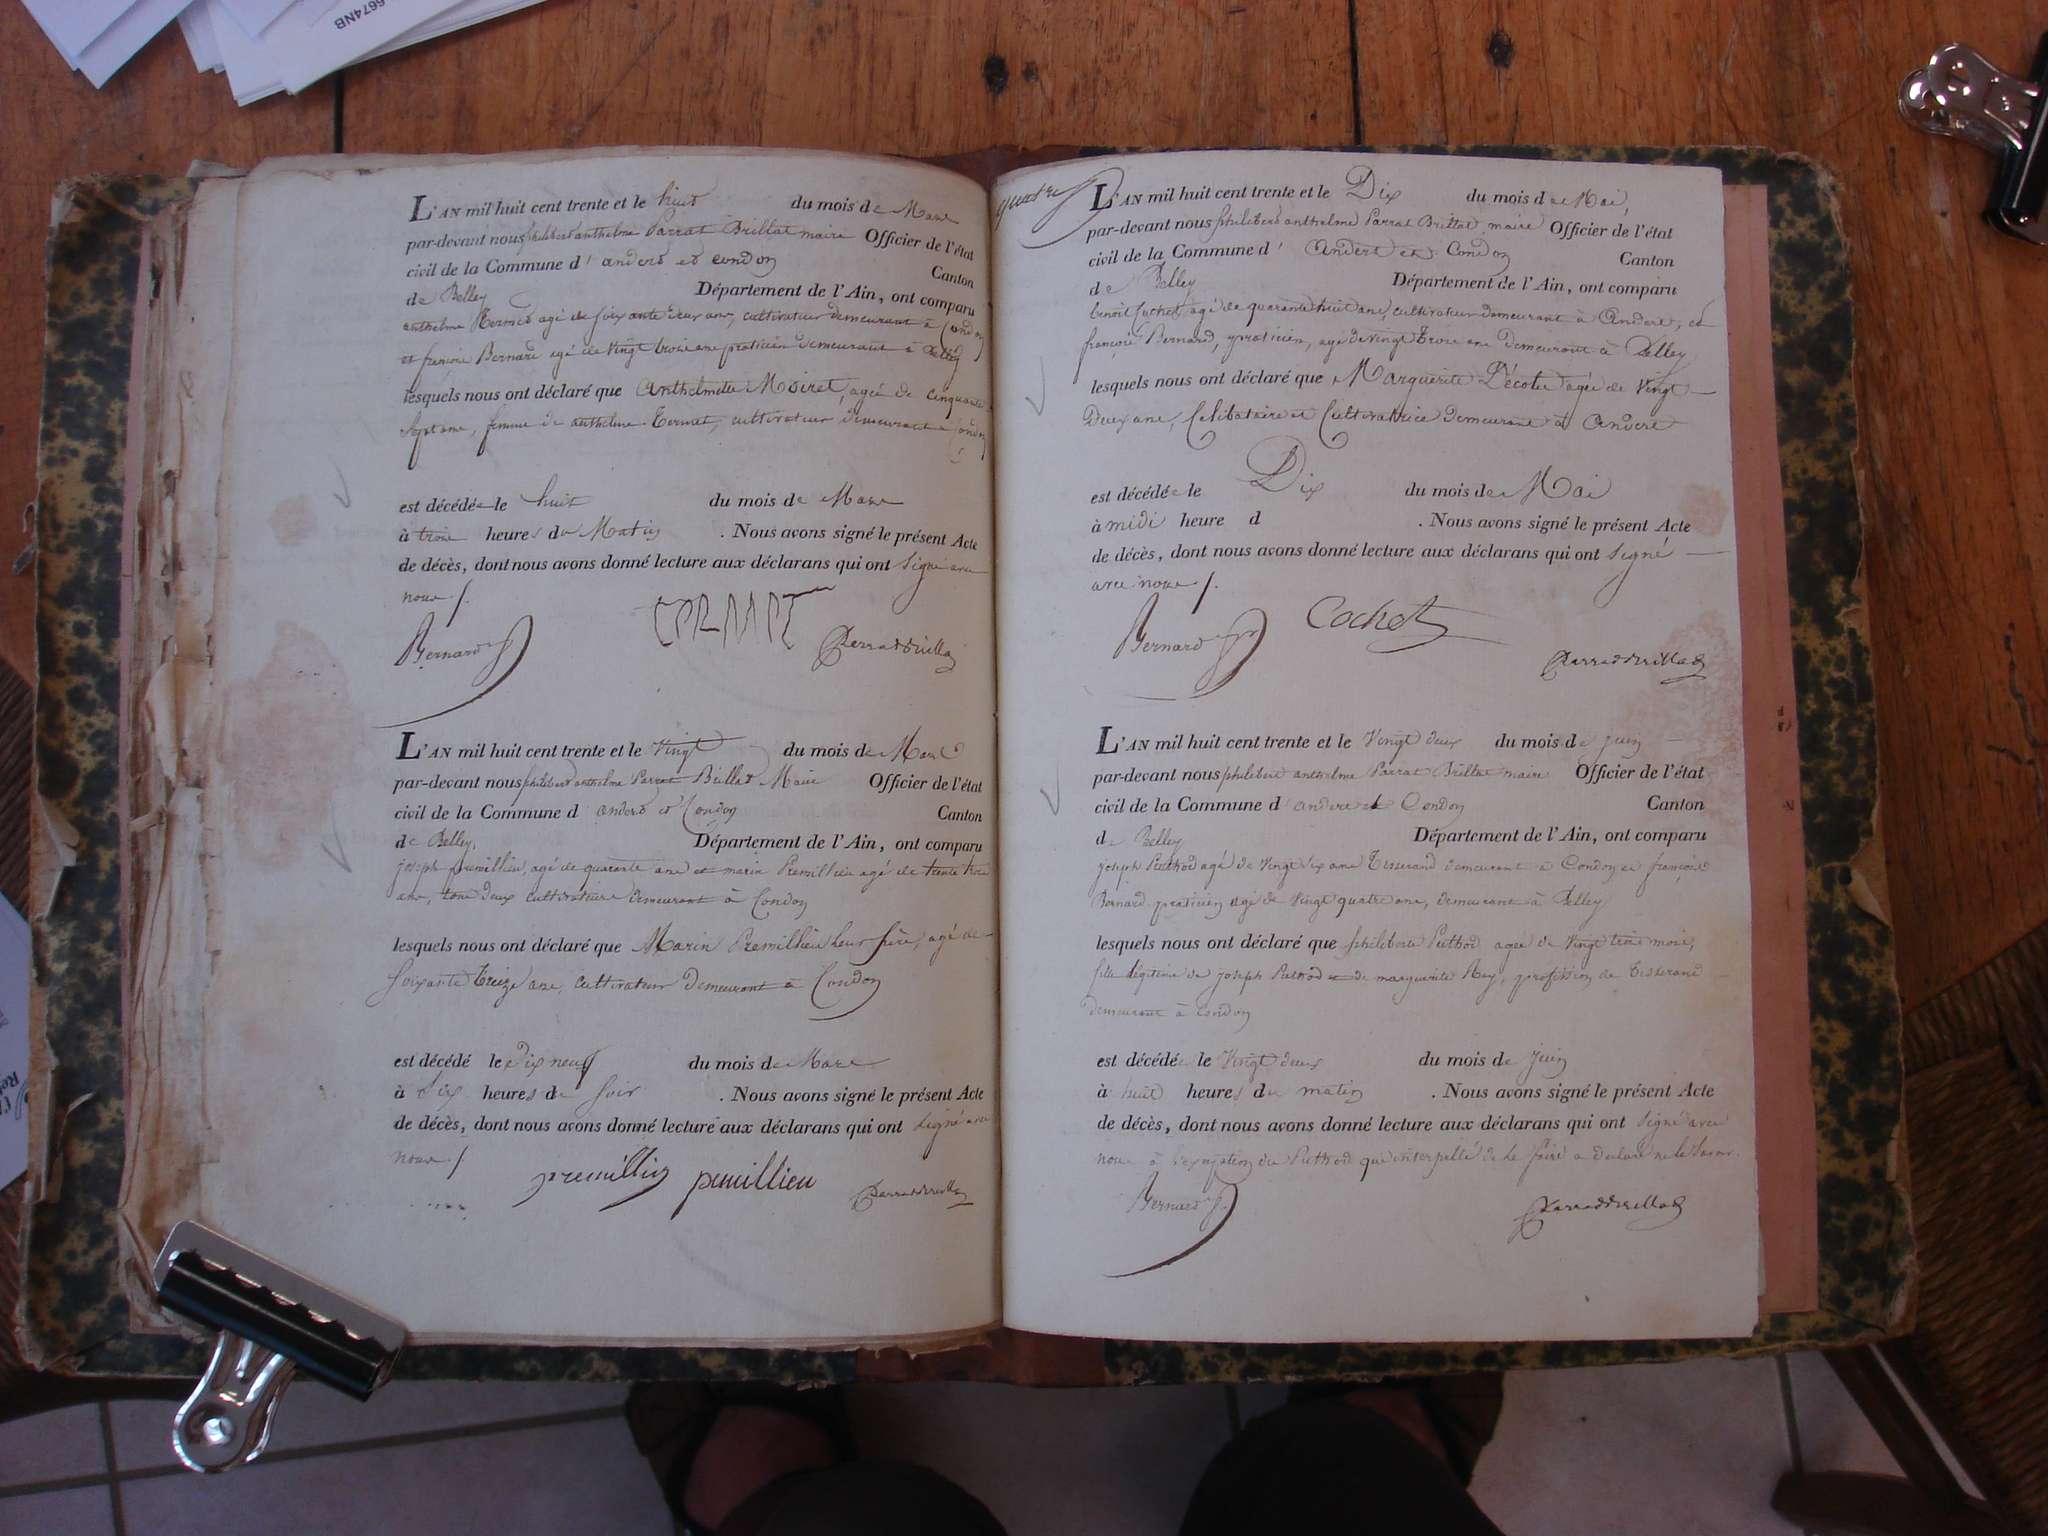 6674NB
L'AN mil huit cent trente et le huit du mois de Mars
par-devant nous philibert anthelme Parrat Brillat maire Officier de l'état
civil de la Commune d'andert et condon Canton
de Belley Département de l'Ain, ont comparu
anthelme agé de soixante deux ans, cultivateur demeurant à Condon
et françois Bernard agé de vingt trois ans praticien demeurant à Belley
lesquels nous ont déclaré que Anthelmette Moiret, agée de cinquante
sept ans, femme de anthelme, cultivateur demeurant à Condon
est décédée le huit du mois de Mars
à trois heures du Matin . Nous avons signé le présent Acte
de décès, dont nous avons donné lecture aux déclarans qui ont signé avec
nous /.
Bernard Parrat Brillat
L'AN mil huit cent trente et le vingt du mois de Mars
par-devant nous philibert anthelme Parrat Brillat Maire Officier de l'état
civil de la Commune d'andert et Condon Canton
de Belley, Département de l'Ain, ont comparu
joseph premillieu, agé de quarante ans et marin Premillieu agé de trente trois
ans, tous deux cultivateurs demeurant à Condon
lesquels nous ont déclaré que Marin Premillieu leur père, agé de
soixante treize ans, cultivateur demeurant à Condon
est décédé le dix neuf du mois de Mars
à six heures du soir . Nous avons signé le présent Acte
de décès, dont nous avons donné lecture aux déclarans qui ont signé avec
nous /.
premillieu Parrat Brillat
quatre
L'AN mil huit cent trente et le Dix du mois de Mai,
par-devant nous philibert anthelme Parrat Brillat maire Officier de l'état
civil de la Commune d'Andert et Condon Canton
de Belley Département de l'Ain, ont comparu
benoit Cochet agé de quarante huit ans, cultivateur demeurant à Andert, et
françois Bernard, praticien, agé de vingt trois ans demeurant à Belley
lesquels nous ont déclaré que Marguerite agée de vingt
Deux ans, Celibataire et Cultivatrice demeurant à Andert
est décédée le Dix du mois de Mai
à midi heure d . Nous avons signé le présent Acte
de décès, dont nous avons donné lecture aux déclarans qui ont signé
avec nous /.
Bernard Cochet
Parrat Brillat
L'AN mil huit cent trente et le vingt deux du mois de juin
par-devant nous philibert anthelme Parrat Brillat maire Officier de l'état
civil de la Commune d'andert et Condon Canton
de Belley Département de l'Ain, ont comparu
joseph Puthod agé de vingt six ans Tisserand demeurant à Condon et françois
Bernard praticien agé de vingt quatre ans, demeurant à Belley
lesquels nous ont déclaré que philiberte Puthod agée de vingt trois mois,
fille légitime de joseph Puthod et de marguerite Rey, profession de Tisserand
demeurant à Condon
est décédée le vingt deux du mois de juin
à huit heures du matin . Nous avons signé le présent Acte
de décès, dont nous avons donné lecture aux déclarans qui ont signé avec
nous à l'exception de Puthod qui interpellé de le faire a declaré ne le savoir.
Bernard Parrat Brillat